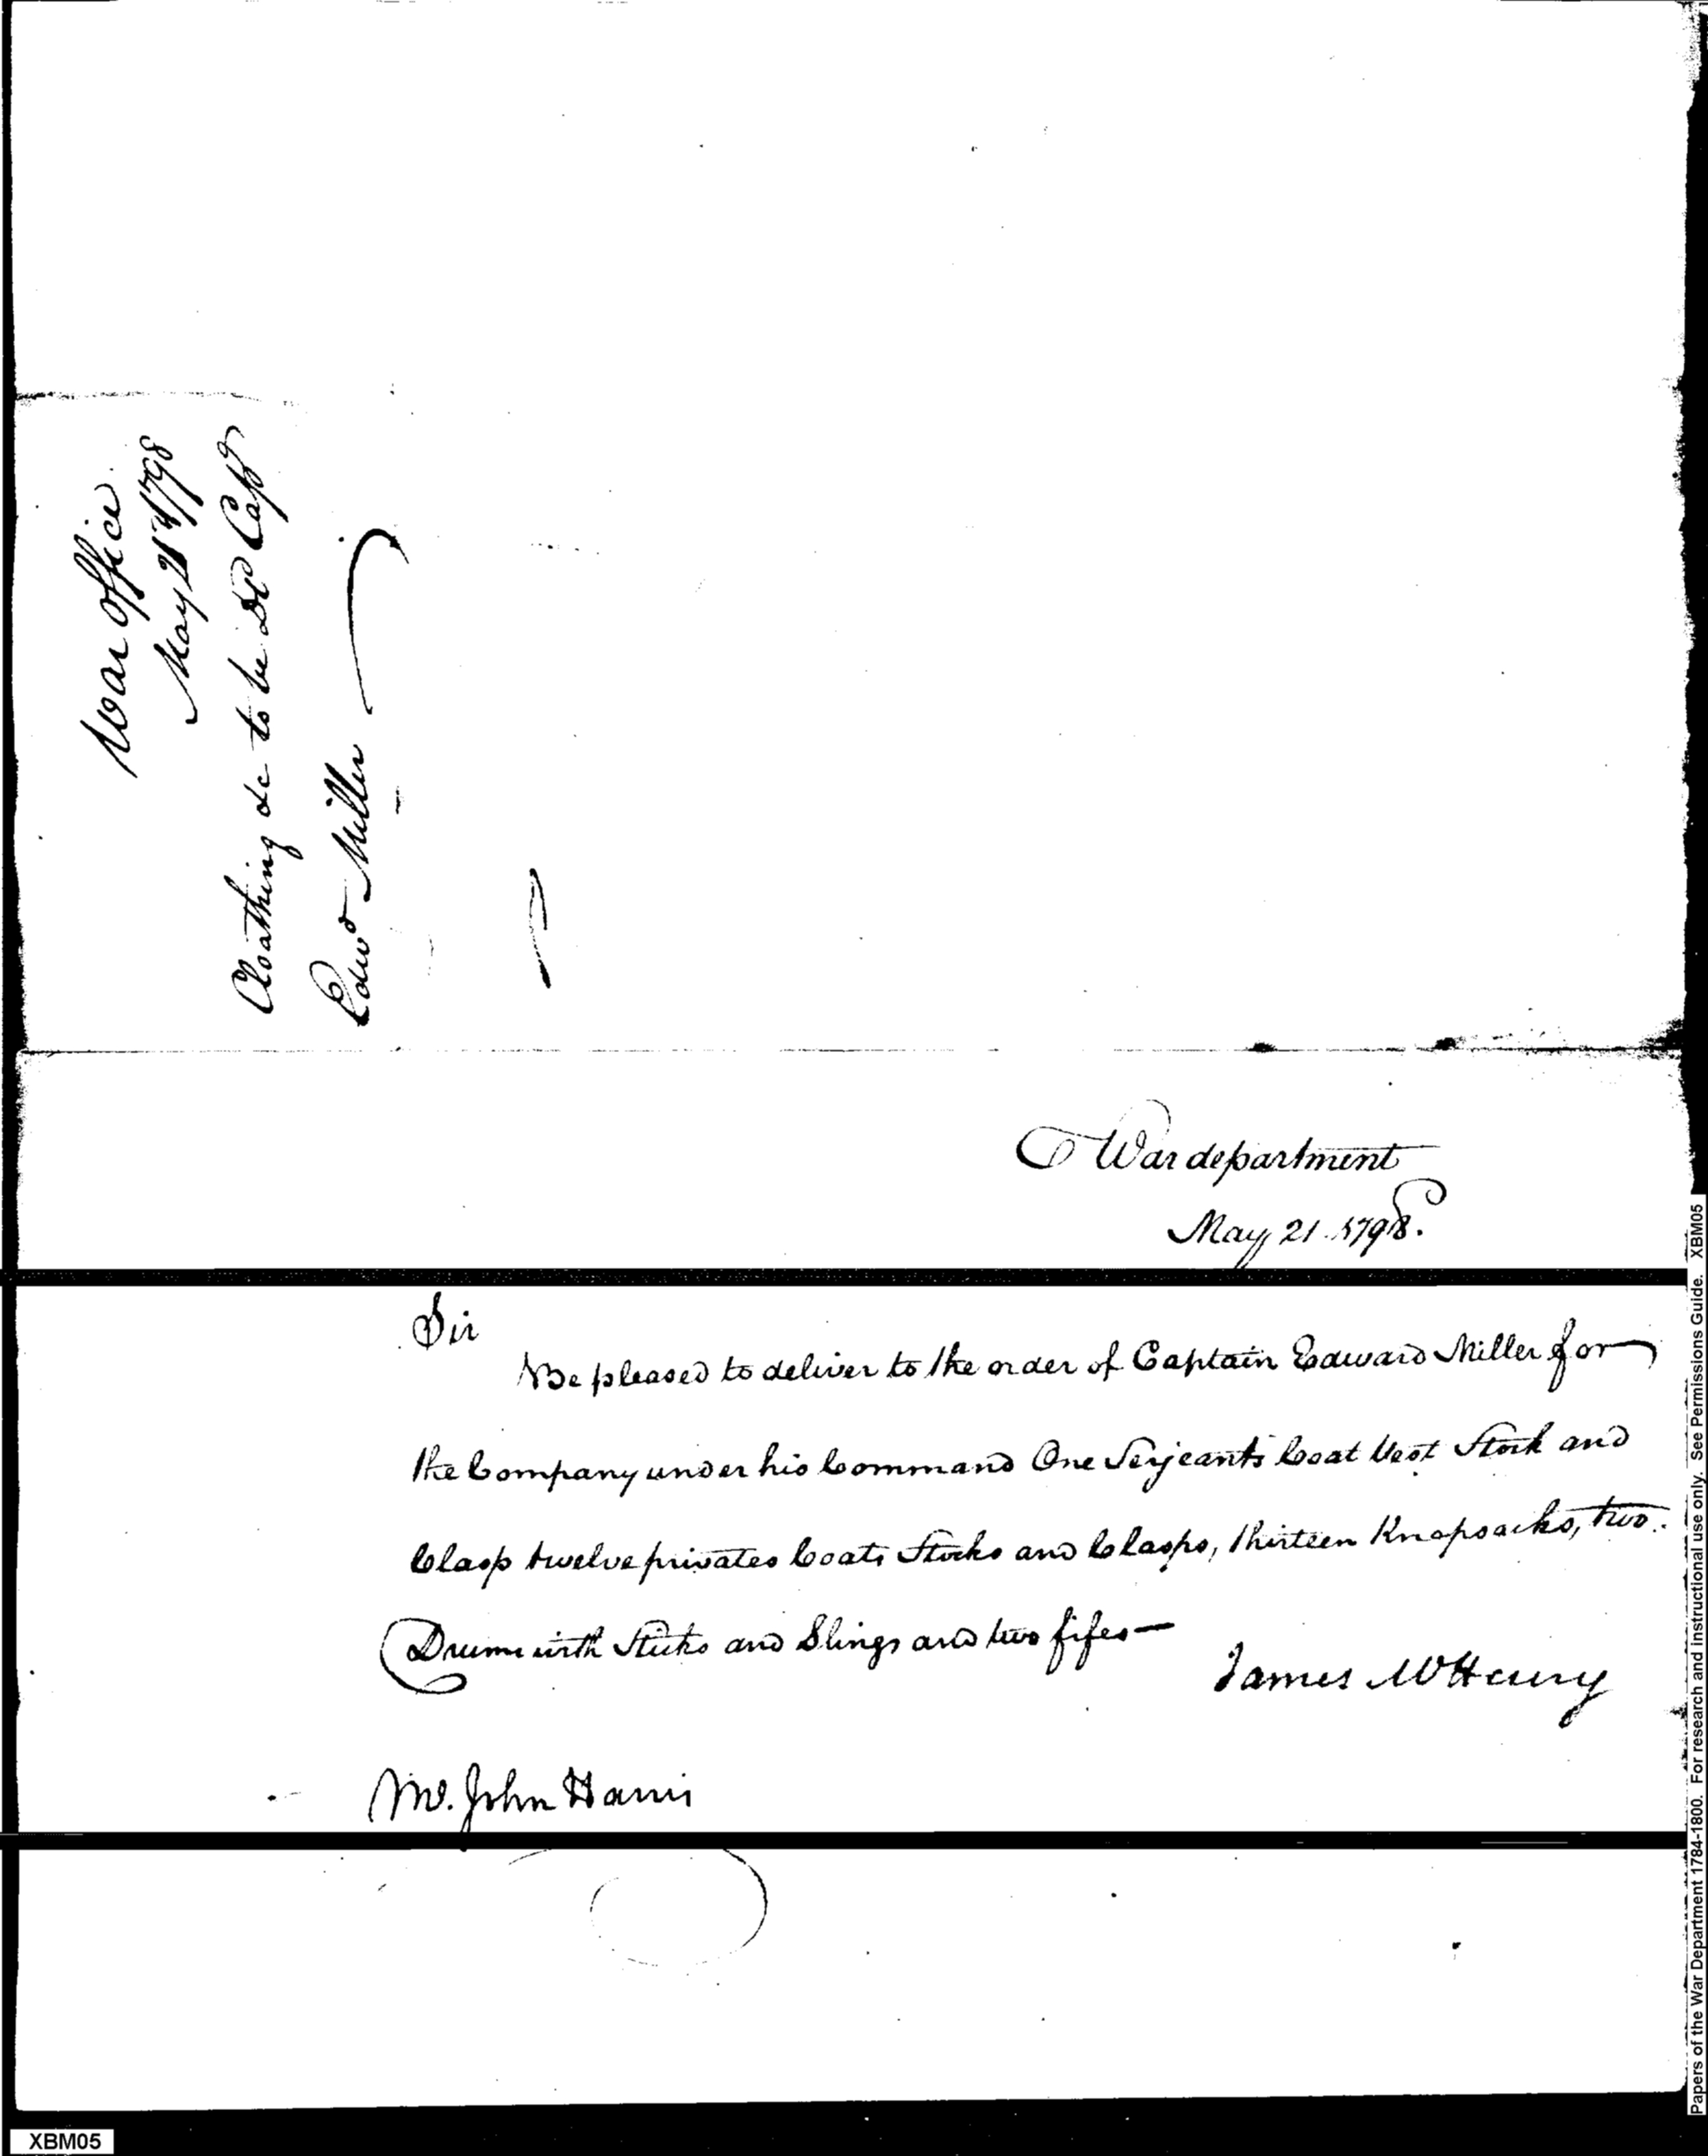 War Office
May 21st 1798
Cloathing &c to be Dd Capt
Edwd Miller
War department
May 21. 1798.
Sir
Be pleased to deliver to the order of Captain Edward Miller for
the Company under his Command One Serjeants Coat Vest Stock and
Clasp twelve privates Coats Stocks and Clasps, thirteen Knapsacks, two
Drums with Sticks and Slings and two fifes—
James McHenry
Mr. John Harris
Papers of the War Department 1784-1800. For research and instructional use only. See Permissions Guide. XBM05
XBM05